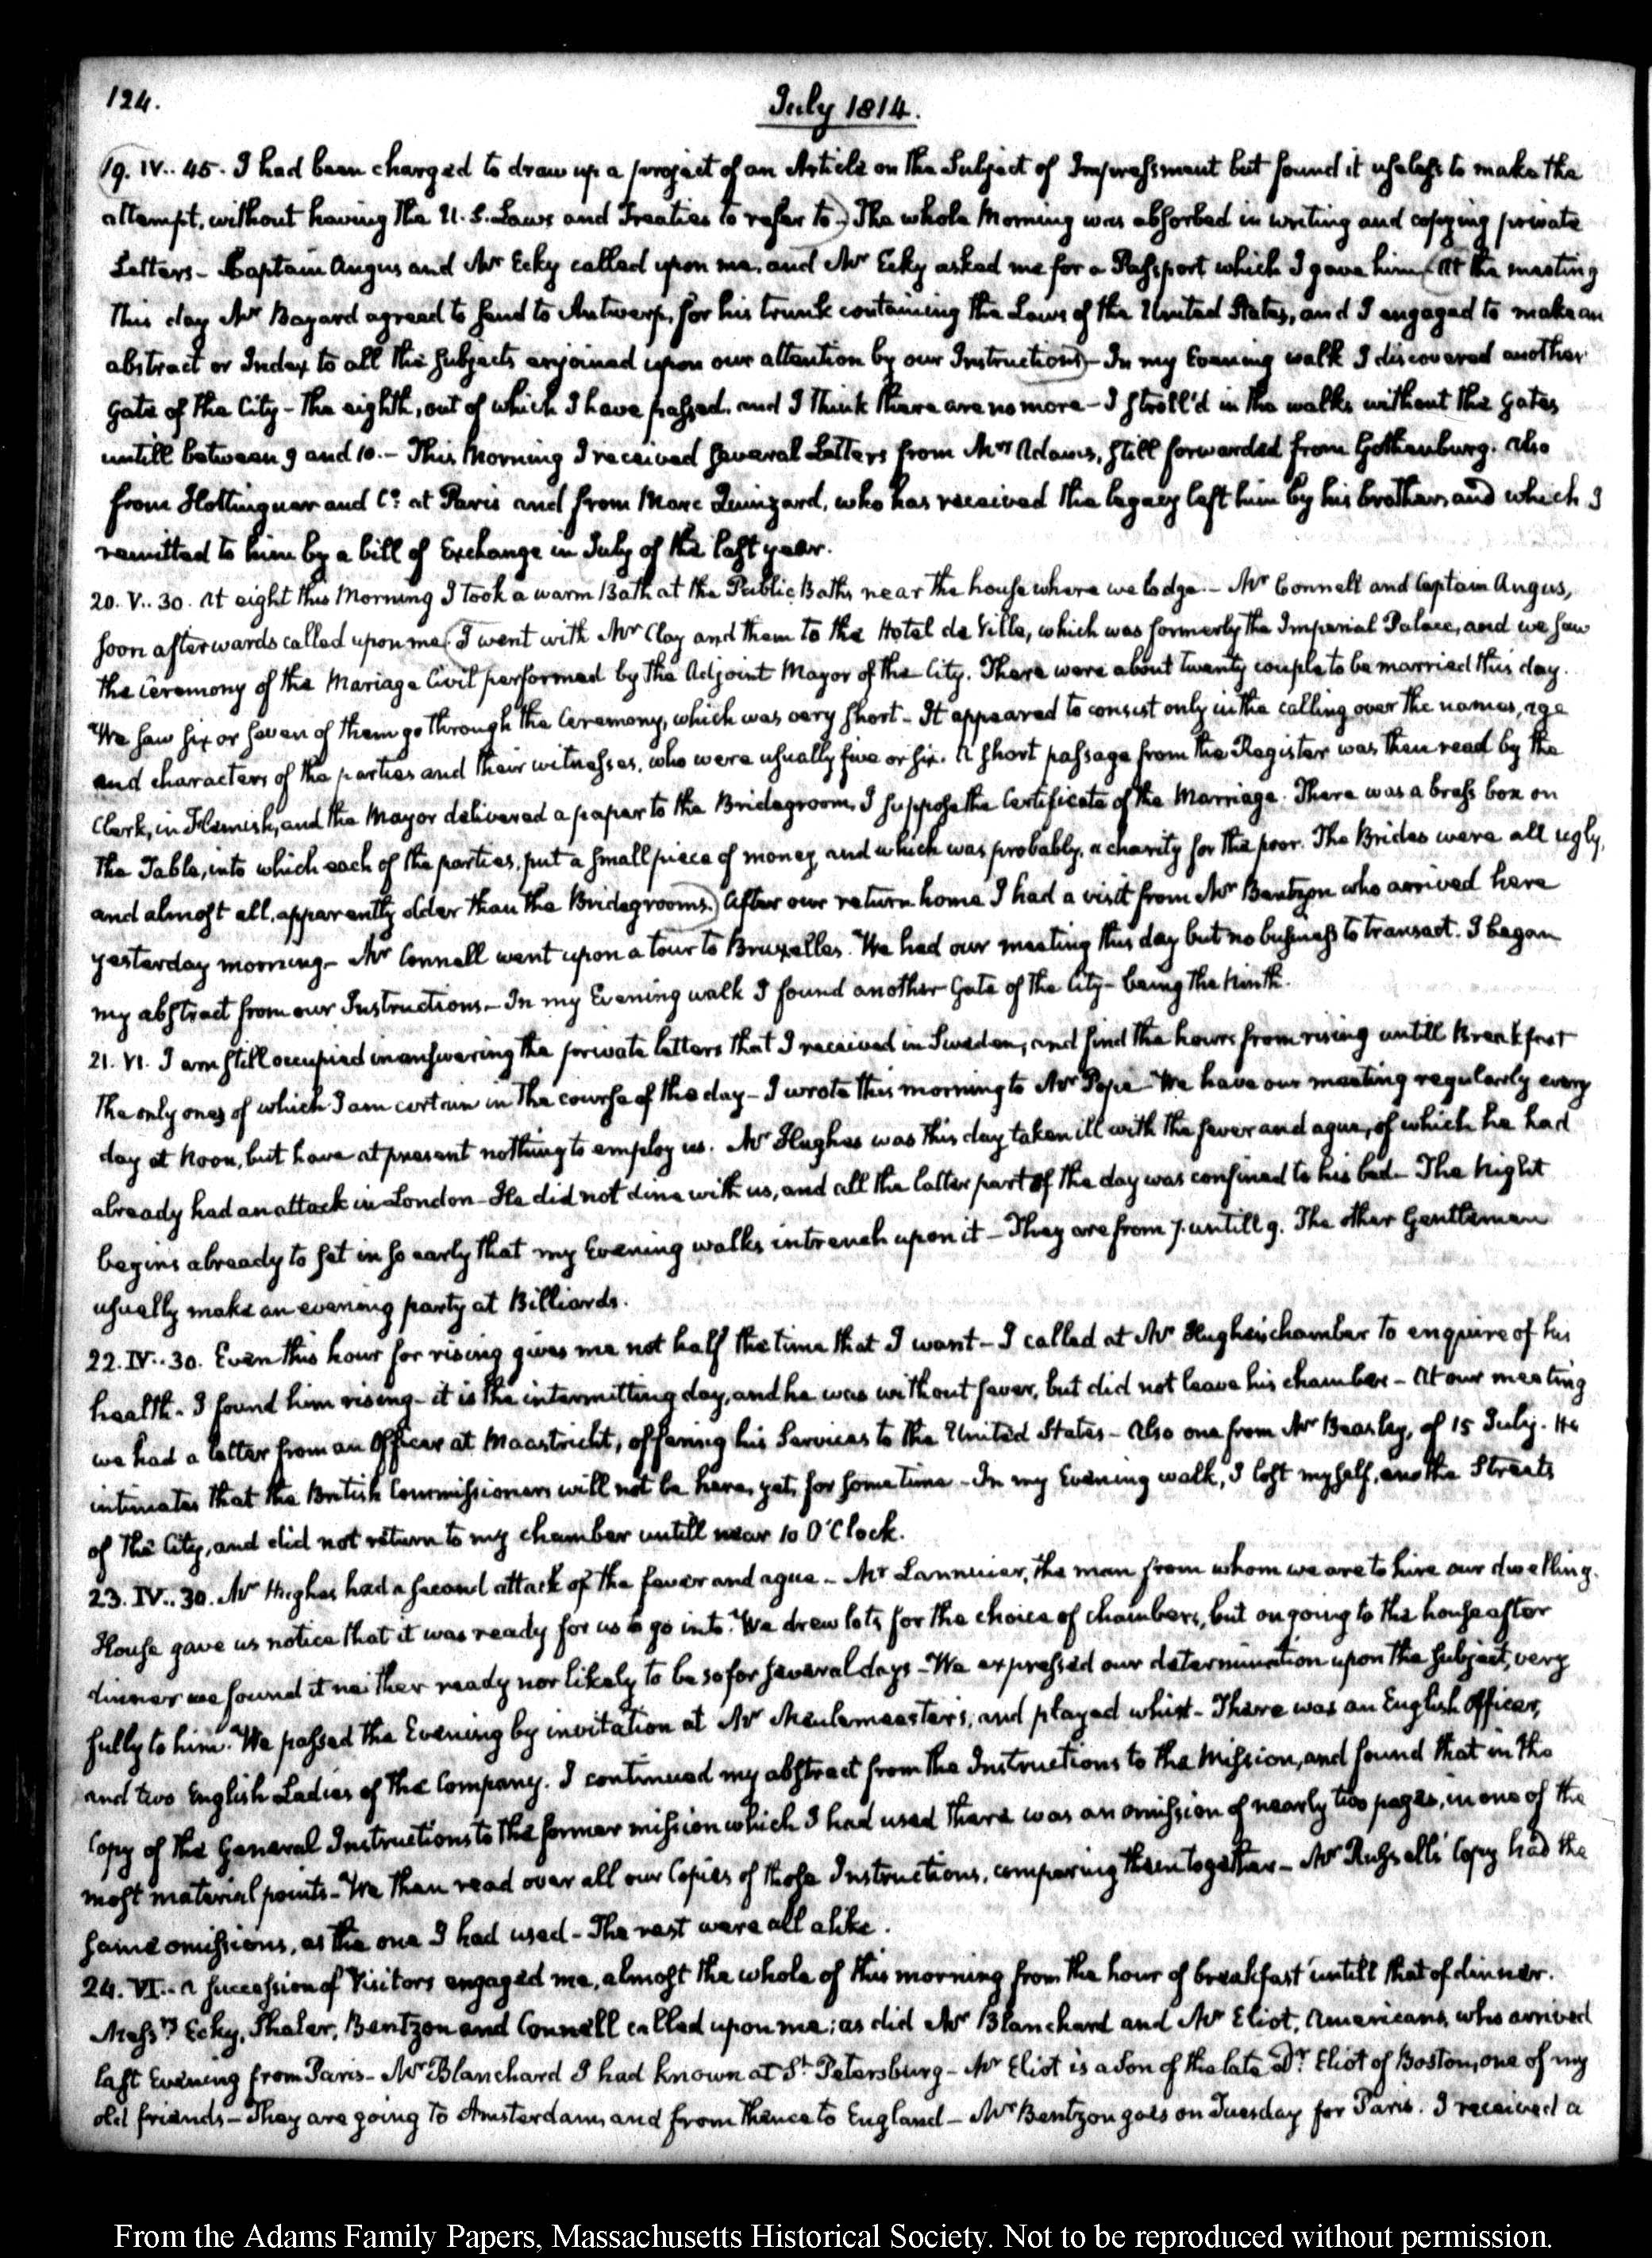 124.
July 1814.
19. IV.. 45. I had been charged to draw up a project of an Article on the Subject of Impressment but found it useless to make the
attempt, without having the U. S. Laws and Treaties to refer to.) The whole Morning was absorbed in writing and copying private
Letters – Captain Angus and Mr Ecky called upon me, and Mr Ecky asked me for a Passport which I gave him. (At the meeting
this day Mr Bayard agreed to send to Antwerp, for his trunk containing the Laws of the United States, and I engaged to make an
abstract or Index to all the subjects enjoined upon our attention by our Instructions) – In my Evening walk I discovered another
gate of the City – the eighth, out of which I have passed, and I think there are no more – I stroll'd in the walks without the gates
untill between 9 and 10. – This Morning I received several Letters from Mrs Adams, still forwarded from Gothenburg. Also
from Hottinguer and Co. at Paris and from Marc Quinzard, who has received the legacy left him by his brother, and which I
remitted to him by a bill of Exchange in July of the last year.
20. V.. 30. At eight this Morning I took a warm Bath at the Public Baths near the house where we lodge. – Mr Connell and Captain Angus,
soon afterwards called upon me. (I went with Mr Clay and them to the Hotel de Ville, which was formerly the Imperial Palace, and we saw
the ceremony of the Mariage Civil performed by the Adjoint Mayor of the City. There were about twenty couple to be married this day.
We saw six or seven of them go through the Ceremony, which was very short – It appeared to consist only in the calling over the names, age
and characters of the parties and their witnesses, who were usually five or six. A short passage from the Register was then read by the
Clerk, in Flemish, and the Mayor delivered a paper to the Bridegroom, I suppose the Certificate of the Marriage. There was a brass box on
the Table, into which each of the parties, put a small piece of money, and which was probably, a charity for the poor. The Brides were all ugly,
and almost all, apparently older than the Bridegrooms.) After our return home I had a visit from Mr Bentzon who arrived here
yesterday morning – Mr Connell went upon a tour to Bruxelles. We had our meeting this day but no business to transact. I began
my abstract from our Instructions. – In my Evening walk I found another Gate of the City – being the Ninth.
21. VI. I am still occupied in answering the private letters that I received in Sweden, and find the hours from rising untill Breakfast
the only ones of which I am certain in the course of the day – I wrote this morning to Mr Pope – We have our meeting regularly every
day at Noon, but have at present nothing to employ us. Mr Hughes was this day taken ill with the fever and ague, of which he had
already had an attack in London – He did not dine with us, and all the latter part of the day was confined to his bed – The Night
begins already to set in so early that my Evening walks intrench upon it – They are from 7. untill 9. The other Gentlemen
usually make an evening party at Billiards.
22. IV.. 30. Even this hour for rising gives me not half the time that I want – I called at Mr Hughes's chamber to enquire of his
health. I found him rising – it is the intermitting day, and he was without fever, but did not leave his chamber – At our meeting
we had a letter from an Officer at Maastricht, offering his Services to the United States – Also one from Mr Beasley, of 15 July. He
intimates that the British Commissioners will not be here, yet, for some time – In my Evening walk, I lost myself, in the Streets
of the City, and did not return to my chamber untill near 10 O'Clock.
23. IV.. 30. Mr Hughes had a second attack of the fever and ague – Mr Lannuier, the man from whom we are to hire our dwelling
House gave us notice that it was ready for us to go into. We drew lots for the choice of chambers, but on going to the house after
dinner we found it neither ready nor likely to be so for several days – We expressed our determination upon the subject, very
fully to him. We passed the Evening by invitation at Mr Meulemeester's, and played whist – There was an English Officer,
and two English Ladies of the Company. I continued my abstract from the Instructions to the Mission, and found that in the
Copy of the General Instructions to the former mission which I had used there was an omission of nearly two pages, in one of the
most material points – We then read over all our Copies of those Instructions, comparing them together – Mr Russell's Copy had the
same omissions, as the one I had used – The rest were all alike.
24. VI.. A succession of Visitors engaged me, almost the whole of this morning from the hour of breakfast untill that of dinner.
Messrs Ecky, Shaler, Bentzon and Connell called upon me; as did Mr Blanchard and Mr Eliot, Americans, who arrived
last Evening from Paris – Mr Blanchard I had known at St Petersburg – Mr Eliot is a Son of the late Dr Eliot of Boston, one of my
old friends – They are going to Amsterdam, and from thence to England – Mr Bentzon goes on Tuesday for Paris. I received a
From the Adams Family Papers, Massachusetts Historical Society. Not to be reproduced without permission.